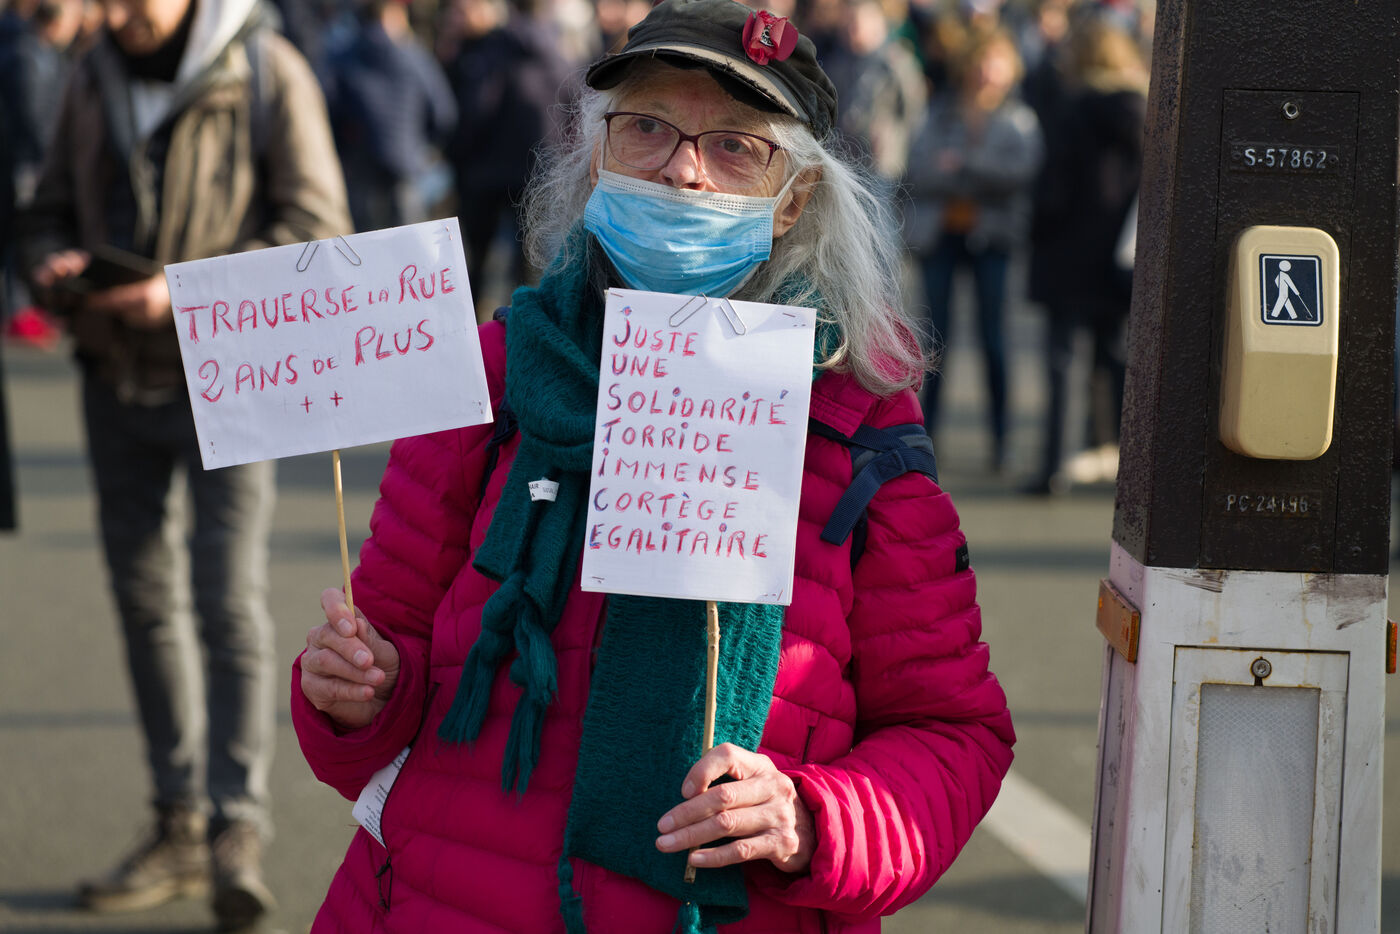 TRAVERSE LA RUE
2 ANS DE PLUS
++
JUSTE
UNE
SOLIDARITÉ
TORRIDE
IMMENSE
CORTÈGE
EGALITAIRE
S-57862
PC-24196